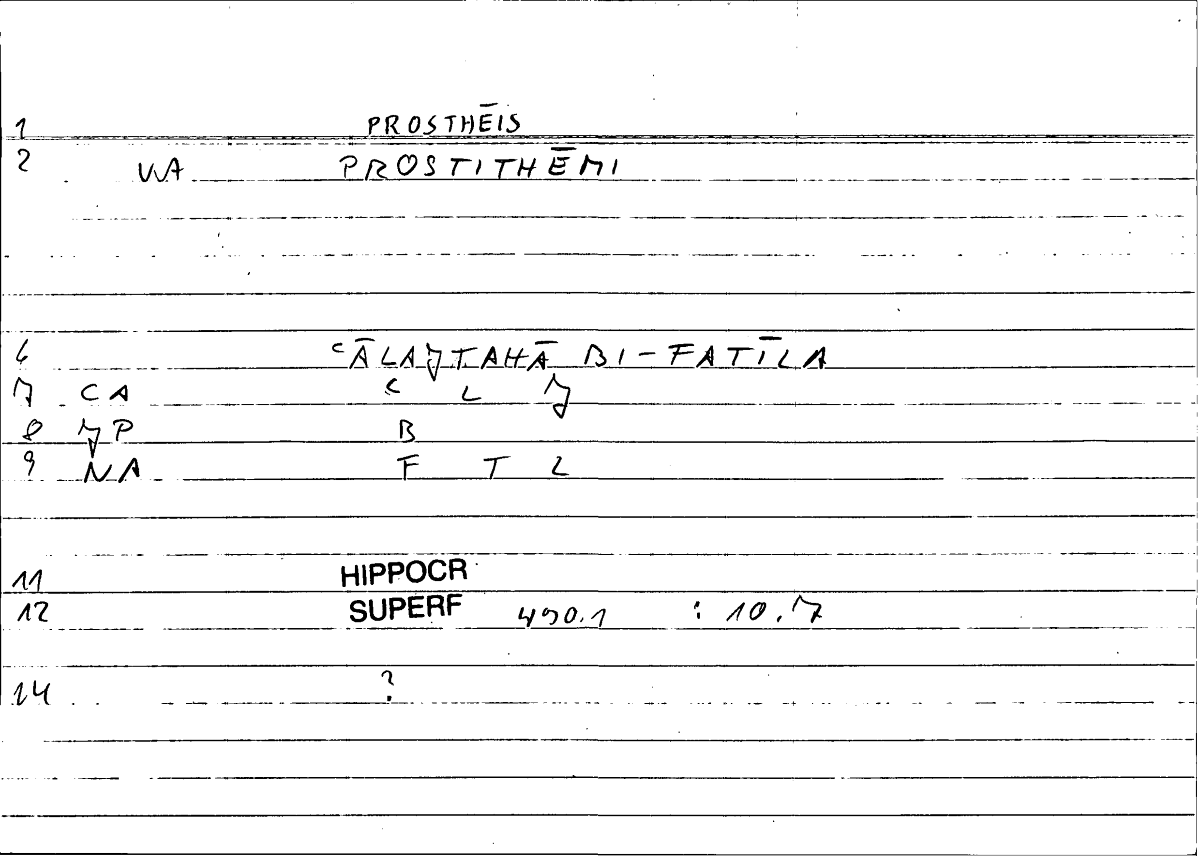 1 PROSTHĒIS
2 VA PROSTITHĒMI
6 ᶜĀLAJTAHĀ BI-FATĪLA
7 CA ᶜ L J
8 JP B
9 NA F T L
11 HIPPOCR
12 SUPERF 490.1 : 10.7
14 ?